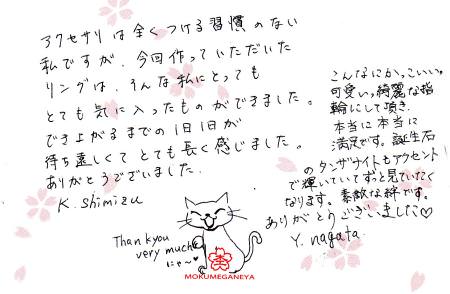 アクセサリは全くつける習慣のない
私ですが、今回作っていただいた
リングは、そんな私にとっても
とても気に入ったものができました。
でき上がるまでの1日1日が
待ち遠しくてとても長く感じました。
ありがとうございました。
K. shimizu
こんなにかっこいい。
可愛いっ綺麗な指
輪にして頂き、
本当に本当に
満足です。誕生石
のタンザナイトもアクセント!
で輝いていてずっと見ていたく
なります。素敵な絆です。
ありがとうございました♡
Y. nagata
Thank you
very much
にゃ〜♡
MOKUMEGANEYA